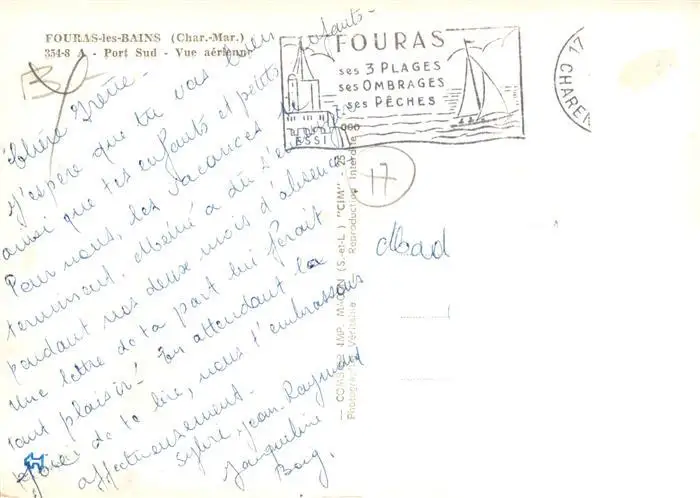 FOURAS-les-BAINS (Char.-Mar.)
354-8 A - Port Sud - Vue aérienne
FOURAS
ses 3 PLAGES
ses OMBRAGES
ses PÊCHES
17 CHAREN
17
Chère Irène -
J'espère que tu vas bien
ainsi que tes enfants et petits enfants -
Pour nous, les vacances se
terminent. Mémé a dû s'
pendant nos deux mois d'absence
Une lettre de ta part lui ferait
tant plaisir! En attendant la
joie de te lire, nous t'embrassons
affectueusement.
Sylvie, Jean-Raymond
Jacqueline
Mad
COMBIER IMP. MACON (S.-et-L.) "CIM"
Photographie Véritable Reproduction Interdite